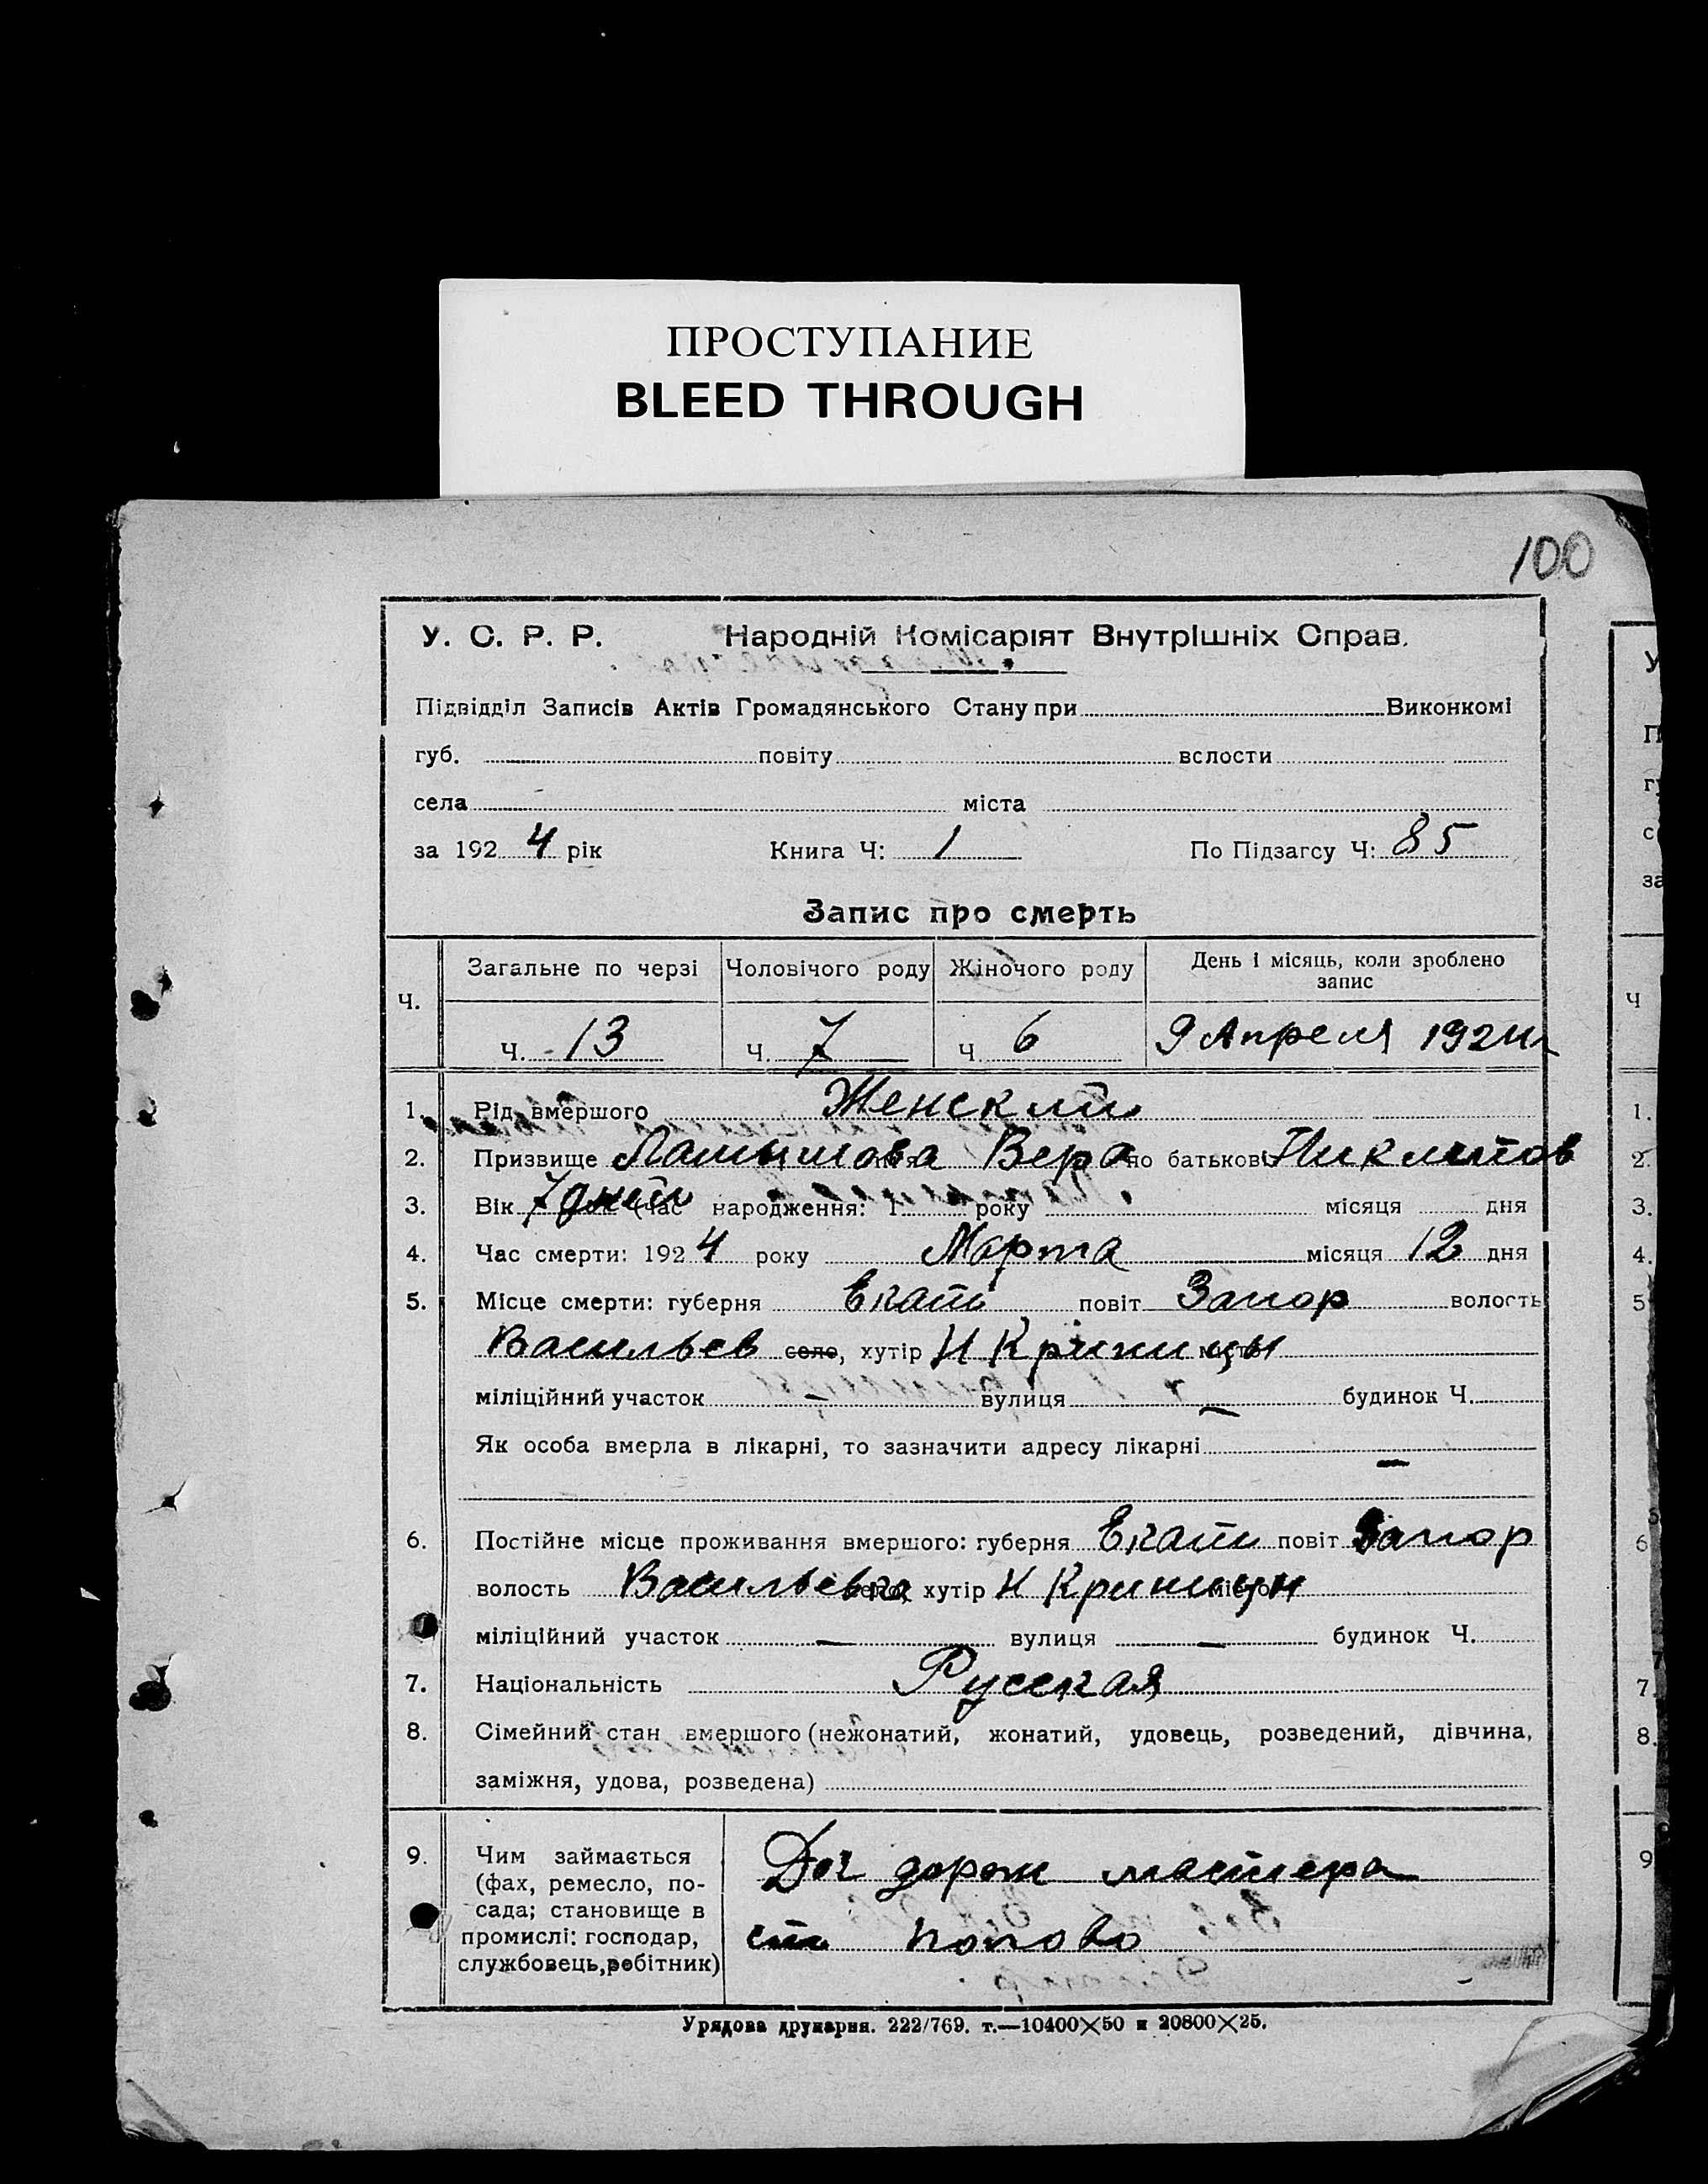 ПРОСТУПАНИЕ
BLEED THROUGH
100
У. С. Р. Р. Народній Комісаріят Внутрішніх Справ.
Підвідділ Записів Актів Громадянського Стану при Виконкомі
губ. повіту вслости
села міста
за 192 4 рік Книга Ч: 1 По Підзагсу Ч: 85
Запис про смерть
Ч. Загальне по черзі Чоловічого роду Жіночого роду День і місяць, коли зроблено запис
Ч. 13 Ч. 7 Ч. 6 9 Апреля 1924 г
1. Рід вмершого Женский
2. Призвище імя Вера по батькові Никитов
3. Вік 7 дней (час народження: 1 року місяця дня
4. Час смерти: 192 4 року Марта місяця 12 дня
5. Місце смерти: губерня Екат повіт Запор волость
Васильев село, хутір Н Криницы місто
міліційний участок — вулиця — будинок Ч.
Як особа вмерла в лікарні, то зазначити адресу лікарні —
6. Постійне місце проживання вмершого: губерня Екат повіт Запор
волость Васильевка село, хутір Н Криницы місто
міліційний участок — вулиця — будинок Ч.
7. Національність Русская
8. Сімейний стан вмершого (нежонатий, жонатий, удовець, розведений, дівчина,
заміжня, удова, розведена)
9. Чим займається
(фах, ремесло, по-
сада; становище в
промислі: господар,
службовець, робітник)
Доч дорож мастера
ст Попово
Урядова друкарня. 222/769. т.—10400×50 и 20800×25.